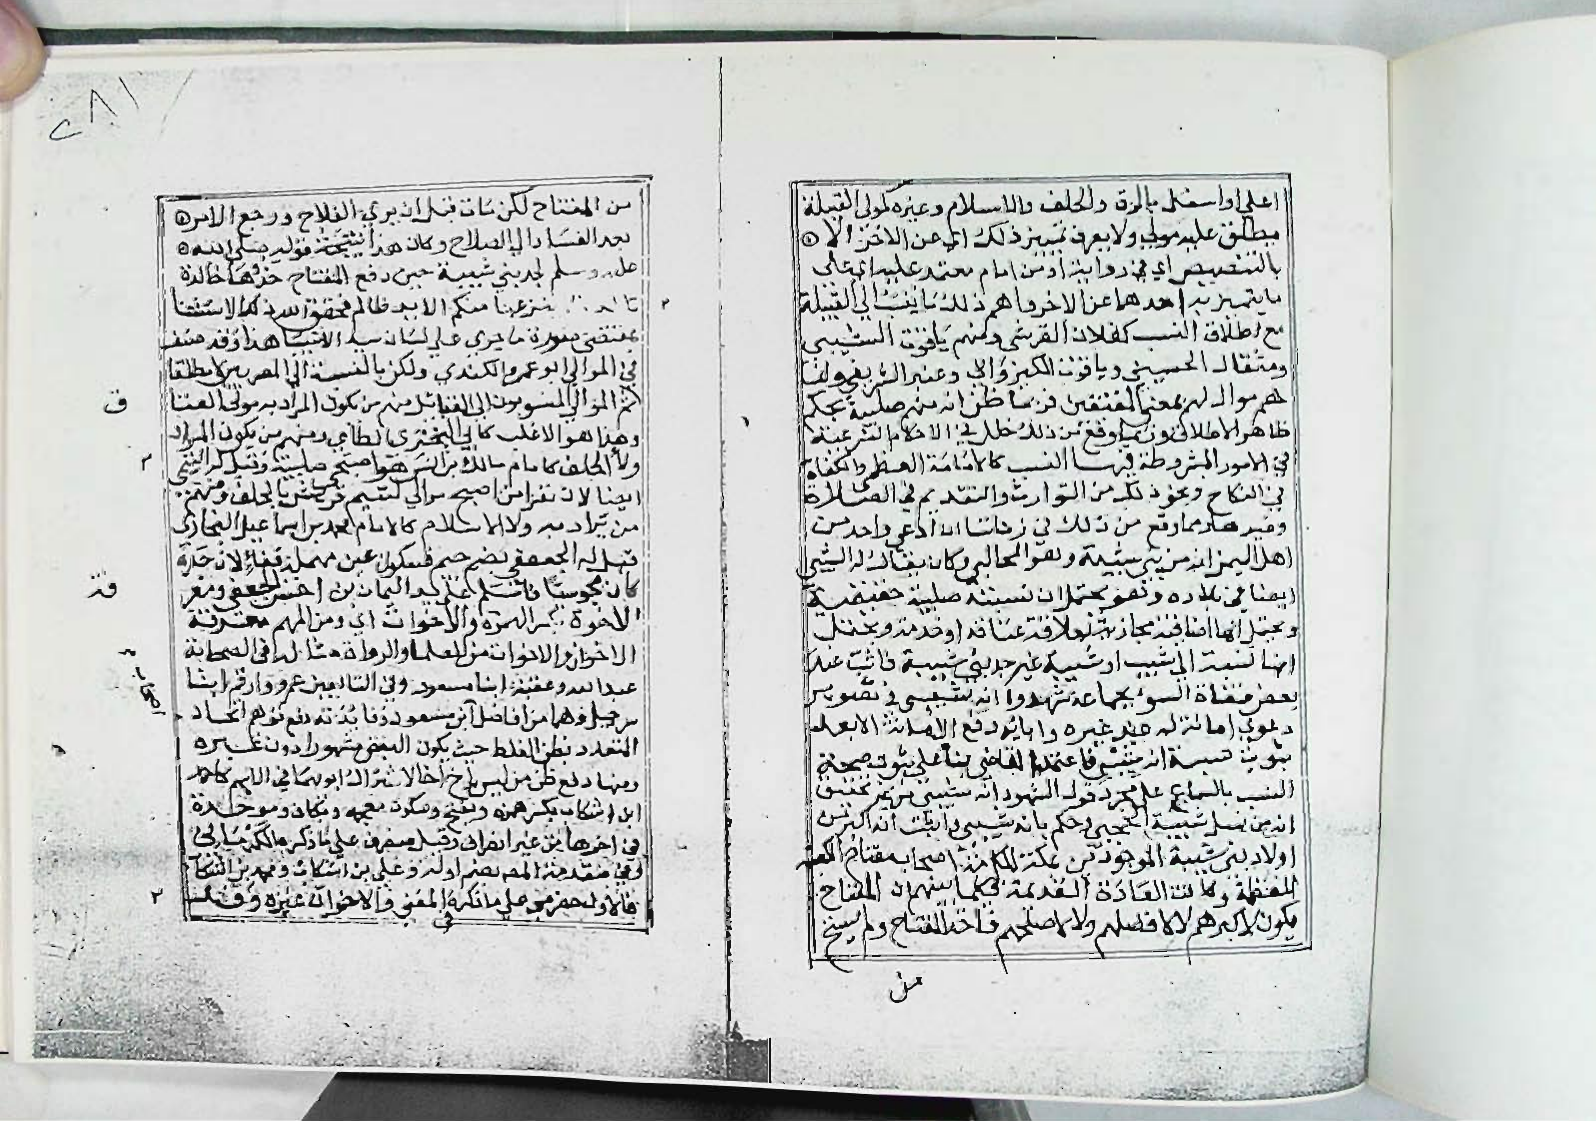 اعلي او اسفل بالرق والحلف والاسلام وغيره كمولي القبيلة
يطلق عليه مولي ولا يعرف تمييز ذلك اي عن الاخر الا
بالتنصيص اي في رواية او من امام معتمد عليه اي علي
ما يتميز به احدهما عن الاخر واهم ذلك ما ينسب الي القبيلة
مع اطلاق النسب كفلان القرشي ومنهم ياقوت الشيبي
ومثقال الحسيني وياقوت الكبير والي وعنبر الشريفي
هم موال لهم بمعني المعتقين فربما ظن انه منهم صلبية بحكم
ظاهر الاطلاق وربما وقع من ذلك خلل في الاحكام الشرعية
في الامور المشروطة فيها النسب كالامامة العظمي والكفاة
في النكاح ونحو ذلك من التوارث والتقديم في الصلاة
وغيرها ومما وقع من ذلك في زماننا انه ادعي واحد من
اهل اليمن انه من بني شيبة وهو المحالبي وكان يقال له الشيبي
ايضا في بلاده وهو يحتمل ان نسبته صلبية حقيقية
ويحتمل انها اضافية مجازية لعلاقة عتاقة او خدمة ويحتمل
انها نسبة الي شيب او شيبة غير جد بني شيبة فاثبت عند
بعض قضاة السوء بجماعة شهدوا انه شيبي في تصوير
دعوي امانة له عند غيره وابايه دفع الامانة الا بعد
ثبوت نسبة انه شيبي فاعتمد القاضي بناء علي ثبوت صحة
النسب بالسماع علي مجرد قول الشهود انه شيبي من غير تحقيق
انه من نسل شيبة الحجبي وحكم بانه شيبي واثبت انه اكبر من
اولاد بني شيبة الموجودين بمكة المكرمة اصحاب مفتاح الكعبة
المعظمة وكانت العادة القديمة فيما بينهم ان المفتاح
يكون لاكبرهم لا لافضلهم ولا لاصلحهم فاخذ المفتاح ولم يسخ
من
٢٨١
من المفتاح لكن مات قبل ان يري الفلاح ورجع الامر
بعد الفساد الي الصلاح وكان هذا نتيجة قوله صلي الله
عليه وسلم لجد بني شيبة حين دفع المفتاح خذوها خالدة
ينزعها منكم الا يد ظالم فحقق الله ذلك الاستثنا
بمقتضي صورة ما جري علي لسان سيد الانبيا هذا وقد صنف
في الموالي ابو عمرو الكندي ولكن بالنسبة الي المصريين لا مطلقا
ثم الموالي المنسوبون الي القبائل منهم من يكون المراد به مولي العتا
ق
وهذا هو الاغلب كابي البختري الطاي ومنهم من يكون المراد
ولا الحلف كالامام مالك بن انس هو اصبحي صلبية وقيل له التيمي
ايضا لان نفرا من اصبح موالي لتيم قريش بالحلف ومنهم
من يراد به ولا الاسلام كالامام محمد بن اسماعيل البخاري
قيل له الجعفي بضم جيم فسكون عين مهملة ففاء لان جده
كان مجوسيا فاسلم علي يد اليمان بن اخنس الجعفي ومعر
فة
الاخوة بكسر الهمزة والاخوات اي ومن المهم معرفة
الاخوان والاخوات من العلما والرواة مثاله في الصحابة
عبد الله وعتبة ابنا مسعود وفي التابعين عمرو وارقم ابنا
شرحبيل وهما من افاضل اصحاب ابن مسعود وفائدته دفع توهم اتحاد
المتعدد بظن الغلط حيث يكون البعض مشهورا دون غيره
ومنها دفع ظن من ليس باخ اخا لاشتراك ابويهما في الاسم كاحمد
ابن اشكاب بكسر همزة وبفتح وسكون معجمة وبكاف وموحدة
في اخرها من غير انصراف وقيل منصرف علي ما ذكره مالكرماني
وفي مقدمة المصنف اوله وعلي بن اشكاب ومحمد بن اشكاب
فالاول حضرمي علي ما ذكره المغني والاخوان غيره وقيل
في